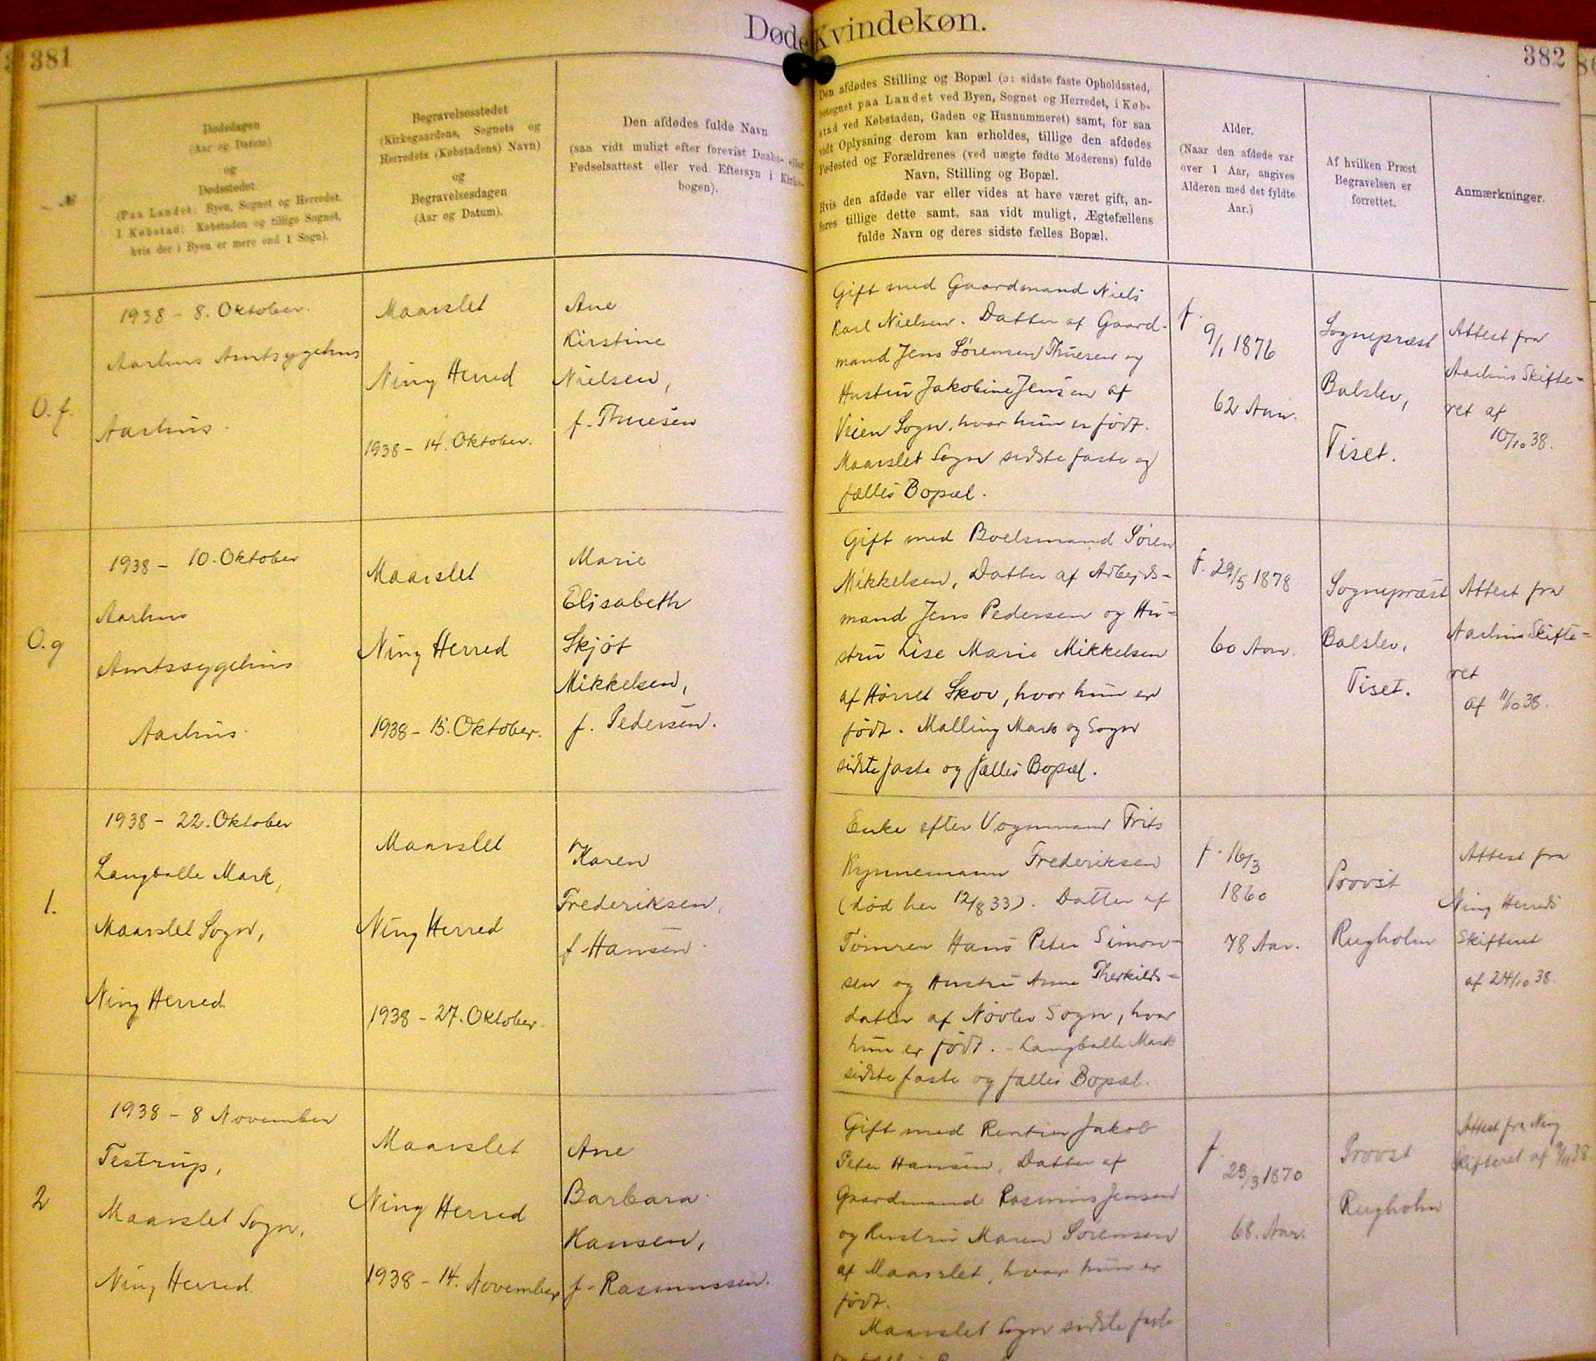 381
Døde Kvindekøn.
382
№
Dødsdagen
(Aar og Datum)
og
Dødsstedet
(Paa Landet: Byen, Sognet og Herredet.
I Købstad: Købstaden og tillige Sognet,
hvis der i Byen er mere end 1 Sogn).
Begravelsesstedet
(Kirkegaardens, Sognets og
Herredets (Købstadens) Navn)
og
Begravelsesdagen
(Aar og Datum).
Den afdødes fulde Navn
(saa vidt muligt efter forevist Daabs- eller
Fødselsattest eller ved Eftersyn i Kirke-
bogen).
Den afdødes Stilling og Bopæl (ɔ: sidste faste Opholdssted,
betegnet paa Landet ved Byen, Sognet og Herredet, i Køb-
stad ved Købstaden, Gaden og Husnummeret) samt, for saa
vidt Oplysning derom kan erholdes, tillige den afdødes
Fødested og Forældrenes (ved uægte fødte Moderens) fulde
Navn, Stilling og Bopæl.
Hvis den afdøde var eller vides at have været gift, an-
føres tillige dette samt, saa vidt muligt, Ægtefællens
fulde Navn og deres sidste fælles Bopæl.
Alder.
(Naar den afdøde var
over 1 Aar, angives
Alderen med det fyldte
Aar.)
Af hvilken Præst
Begravelsen er
forrettet.
Anmærkninger.
O. f.
1938 – 8. Oktober.
Aarhus Amtsygehus
Aarhus.
Maarslet
Ning Herred
1938 – 14. Oktober.
Ane
Kirstine
Nielsen,
f. Thuesen
Gift med Gaardmand Niels
Karl Nielsen. Datter af Gaard-
mand Jens Sørensen Thuesen og
Hustru Jakobine Jensen af
Vejen Sogn, hvor hun er født.
Maarslet Sogn sidste faste og
fælles Bopæl.
f.
9/1 1876
62 Aar.
Sognepræst
Balslev,
Tiset.
Attest fra
Aarhus Skifte-
ret af
10/10 38.
O. g
1938 – 10. Oktober
Aarhus
Amtssygehus
Aarhus.
Maarslet
Ning Herred
1938 – 15. Oktober.
Marie
Elisabeth
Skjøt
Mikkelsen,
f. Pedersen.
Gift med Boelsmand Søren
Mikkelsen, Datter af Arbejds-
mand Jens Pedersen og Hu-
stru Lise Marie Mikkelsen
af Hørret Skov, hvor hun er
født. Malling Mark og Sogn
sidste faste og fælles Bopæl.
f. 29/5 1878
60 Aar.
Sognepræst
Balslev,
Tiset.
Attest fra
Aarhus Skifte-
ret
af 11/10 38.
1.
1938 – 22. Oktober
Langballe Mark,
Maarslet Sogn,
Ning Herred
Maarslet
Ning Herred
1938 – 27. Oktober.
Karen
Frederiksen,
f. Hansen.
Enke efter Vognmand Frits
Frederiksen
(død her 12/8 33). Datter af
Tømrer Hans Peter Simon-
sen og Hustru Anne Therkilds-
datter af Nøvlev Sogn, hvor
hun er født. – Langballe Mark
sidste faste og fælles Bopæl.
f. 16/3
1860
78 Aar.
Provst
Rugholm
Attest fra
Ning Herreds
Skifteret
af 24/10 38.
2
1938 – 8 November
Testrup,
Maarslet Sogn,
Ning Herred
Maarslet
Ning Herred
1938 – 14. November
Ane
Barbara
Hansen,
f. Rasmussen.
Gift med Rentier Jakob
Peter Hansen. Datter af
Gaardmand Rasmus Jensen
og Hustru Maren Sørensen
af Maarslet, hvor hun er
født.
Maarslet Sogn sidste faste
f.
23/3 1870
68. Aar.
Provst
Rugholm
Attest fra Ning
Skifteret af 9/11 38.